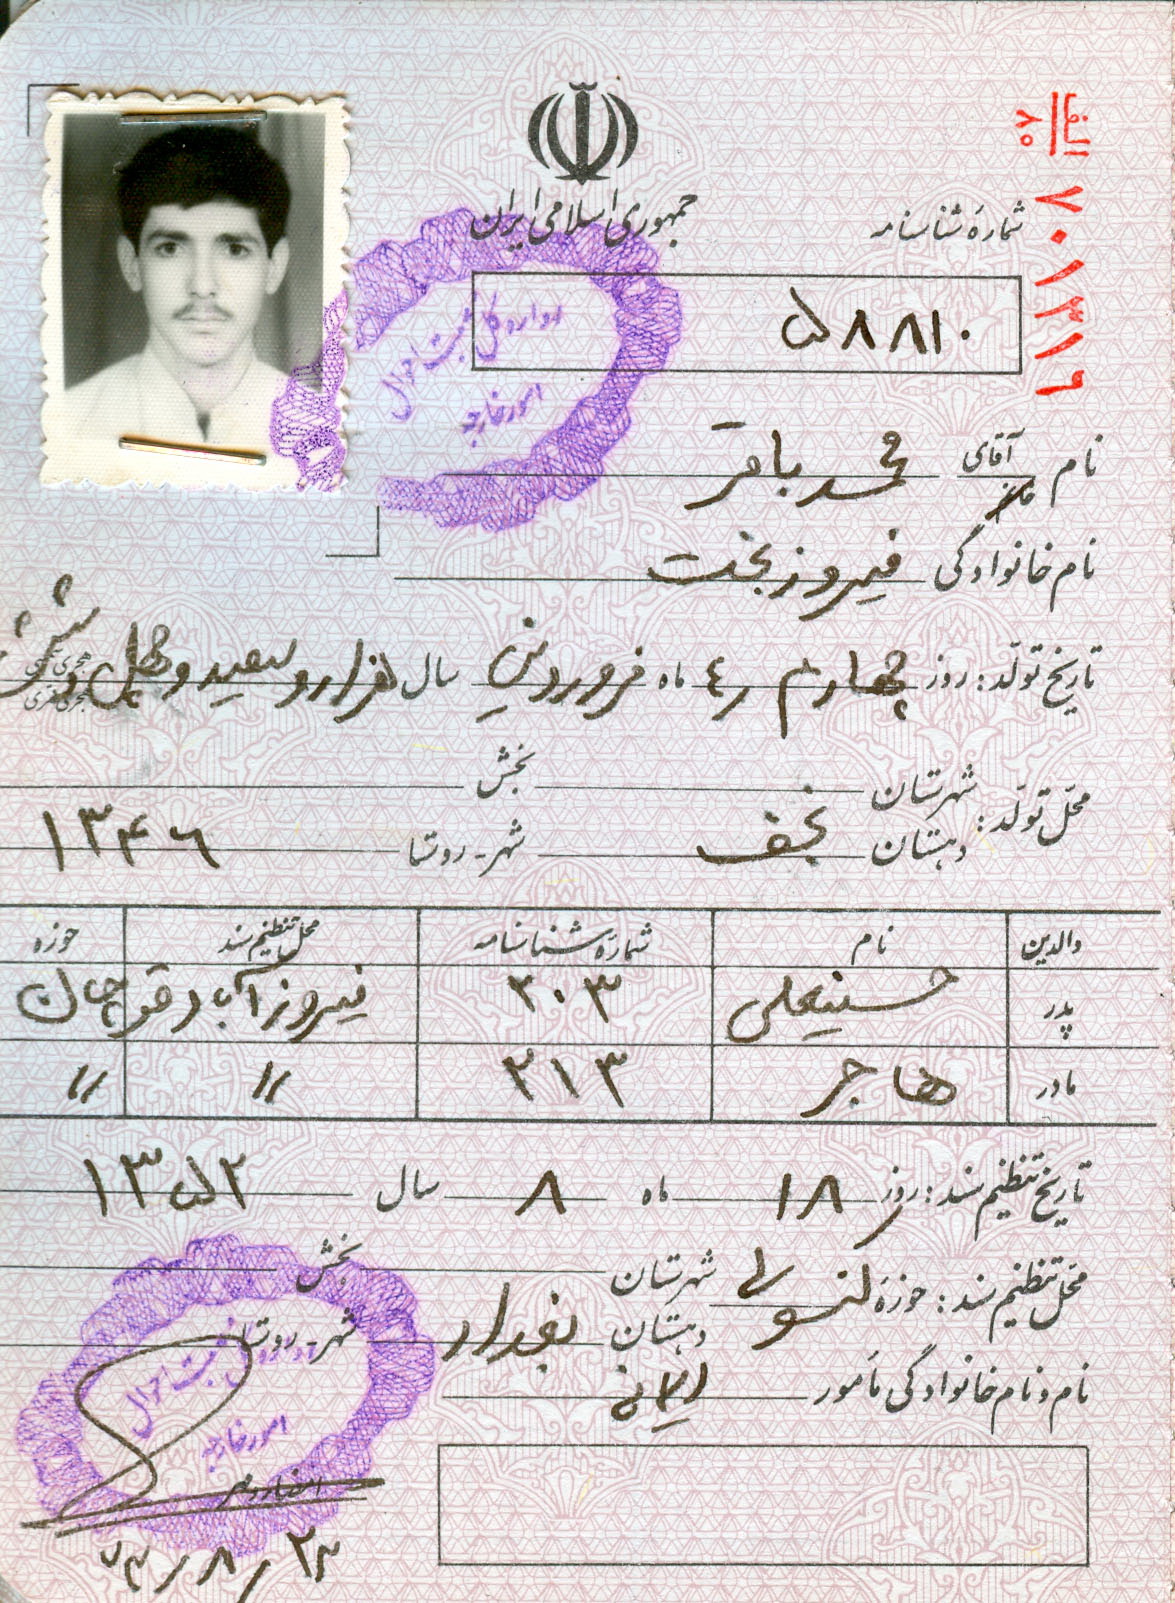 الف
۸۰
۷۰۱۳۱۹
جمهوری اسلامی ایران
شمارۀ شناسنامه
۵۸۸۱۰
اداره کل ثبت احوال
امور خارجه
نام آقای محمد باقر
خانم
نام خانوادگی فیروزبخت
تاریخ تولّد: روز چهارم ر٤ ماه فروردین سال هزار و سیصد و چهل و شش
هجری شمسی
هجری قمری
محلّ تولّد: شهرستان بخش
دهستان نجف شهر - روستا ۱۳۴۶
والدین نام شمارۀ شناسنامه محل تنظیم سند حوزه
پدر حسینعلی ۳۰۳ فیروزآباد قوچان
مادر هاجر ۳۱۳ // //
تاریخ تنظیم سند: روز ۱۸ ماه ۸ سال ۱۳۵۲
محلّ تنظیم سند: حوزۀ شهرستان بخش
دهستان بغداد شهر - روستا
نام و نام خانوادگی مأمور
ثبت احوال
امور خارجه